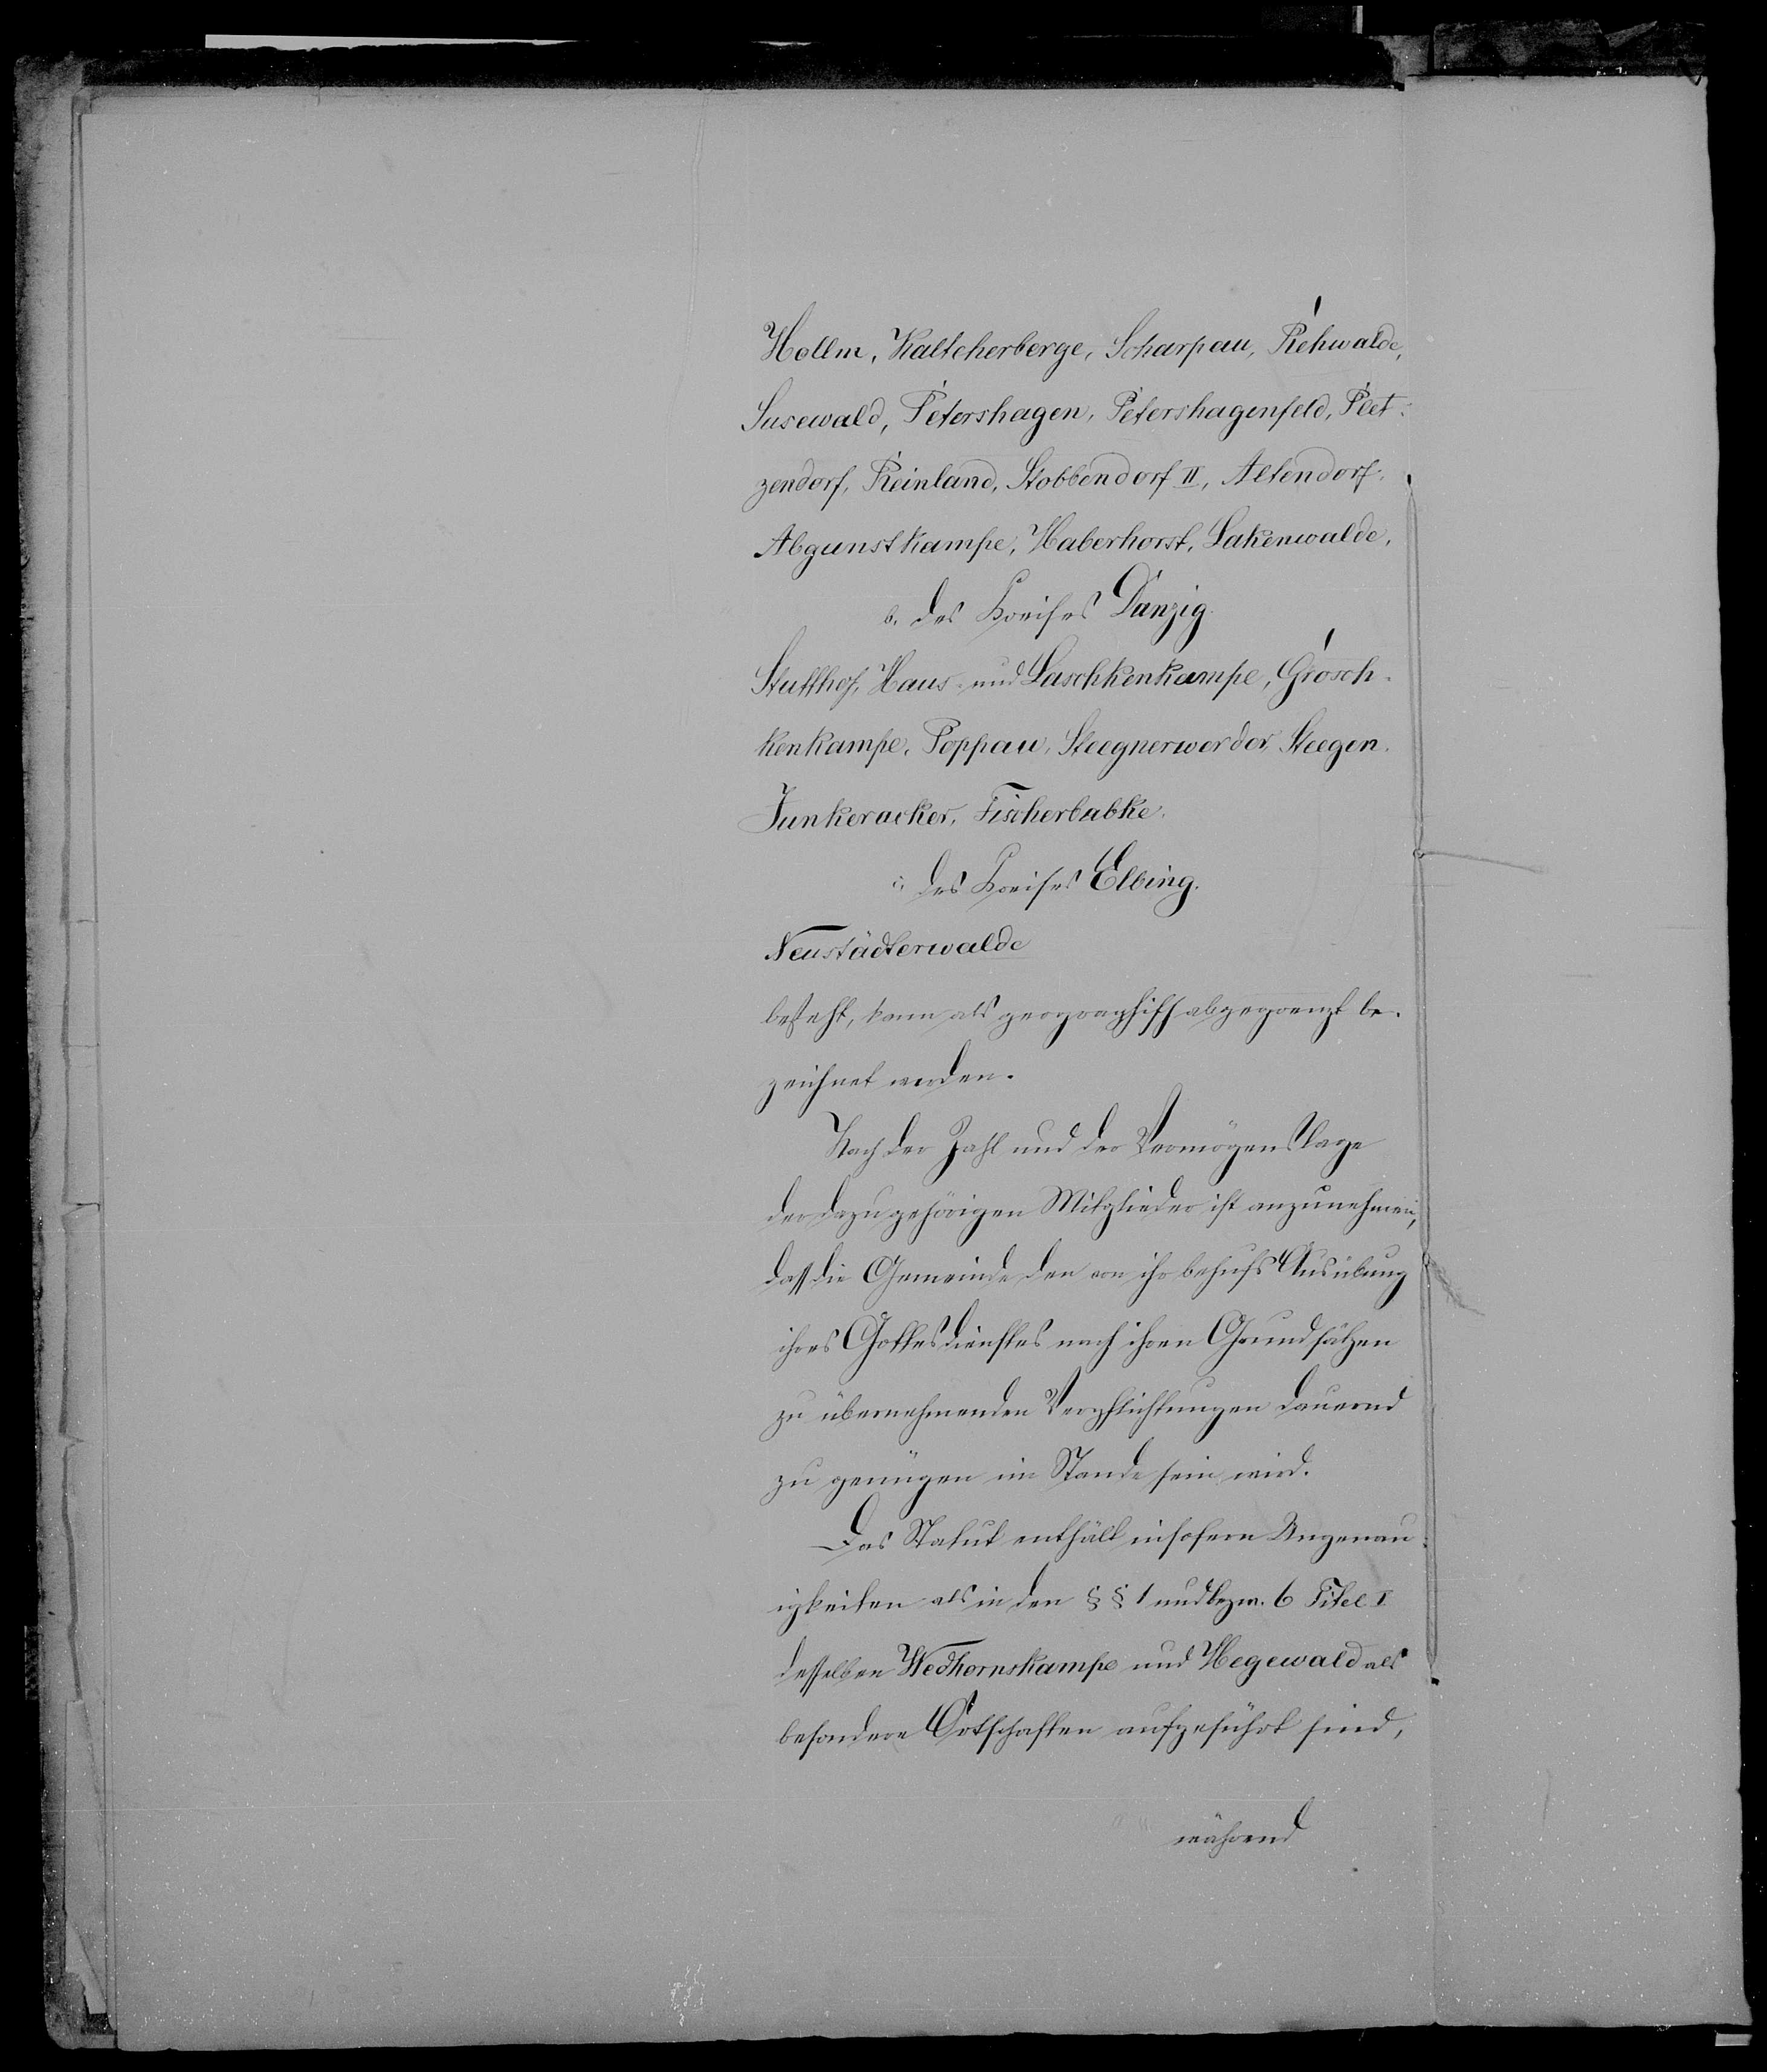 Hollm, Kalteherberge, Scharpau, Rehwalde,
Susewald, Petershagen, Petershagenfeld, Plet-
zendorf, Reinland, Stobbendorf II, Altendorf,
Abgunstkampe, Haberhorst, Lakenwalde,
b. des Kreises Danzig.
Stutthof, Haus- und Laschkenkampe, Grosch-
kenkampe, Poppau, Steegnerwerder, Steegen,
Junkeracker, Fischerbabke.
c. des Kreises Elbing.
Neustädterwalde
besteht, kann als geographisch abgegrenzt be-
zeichnet werden.
Nach der Zahl und der Vermögenslage
der dazu gehörigen Mitglieder ist anzunehmen,
daß die Gemeinde den von ihr behufs Ausübung
ihres Gottesdienstes nach ihren Grundsätzen
zu übernehmenden Verpflichtungen dauernd
zu genügen im Stande sein wird.
Das Statut enthält insofern Ungenau-
igkeiten als in den §§ 1 und bezw. 6 Titel I
desselben Wedhornskampe und Hegewald als
besondere Ortschaften aufgeführt sind,
während